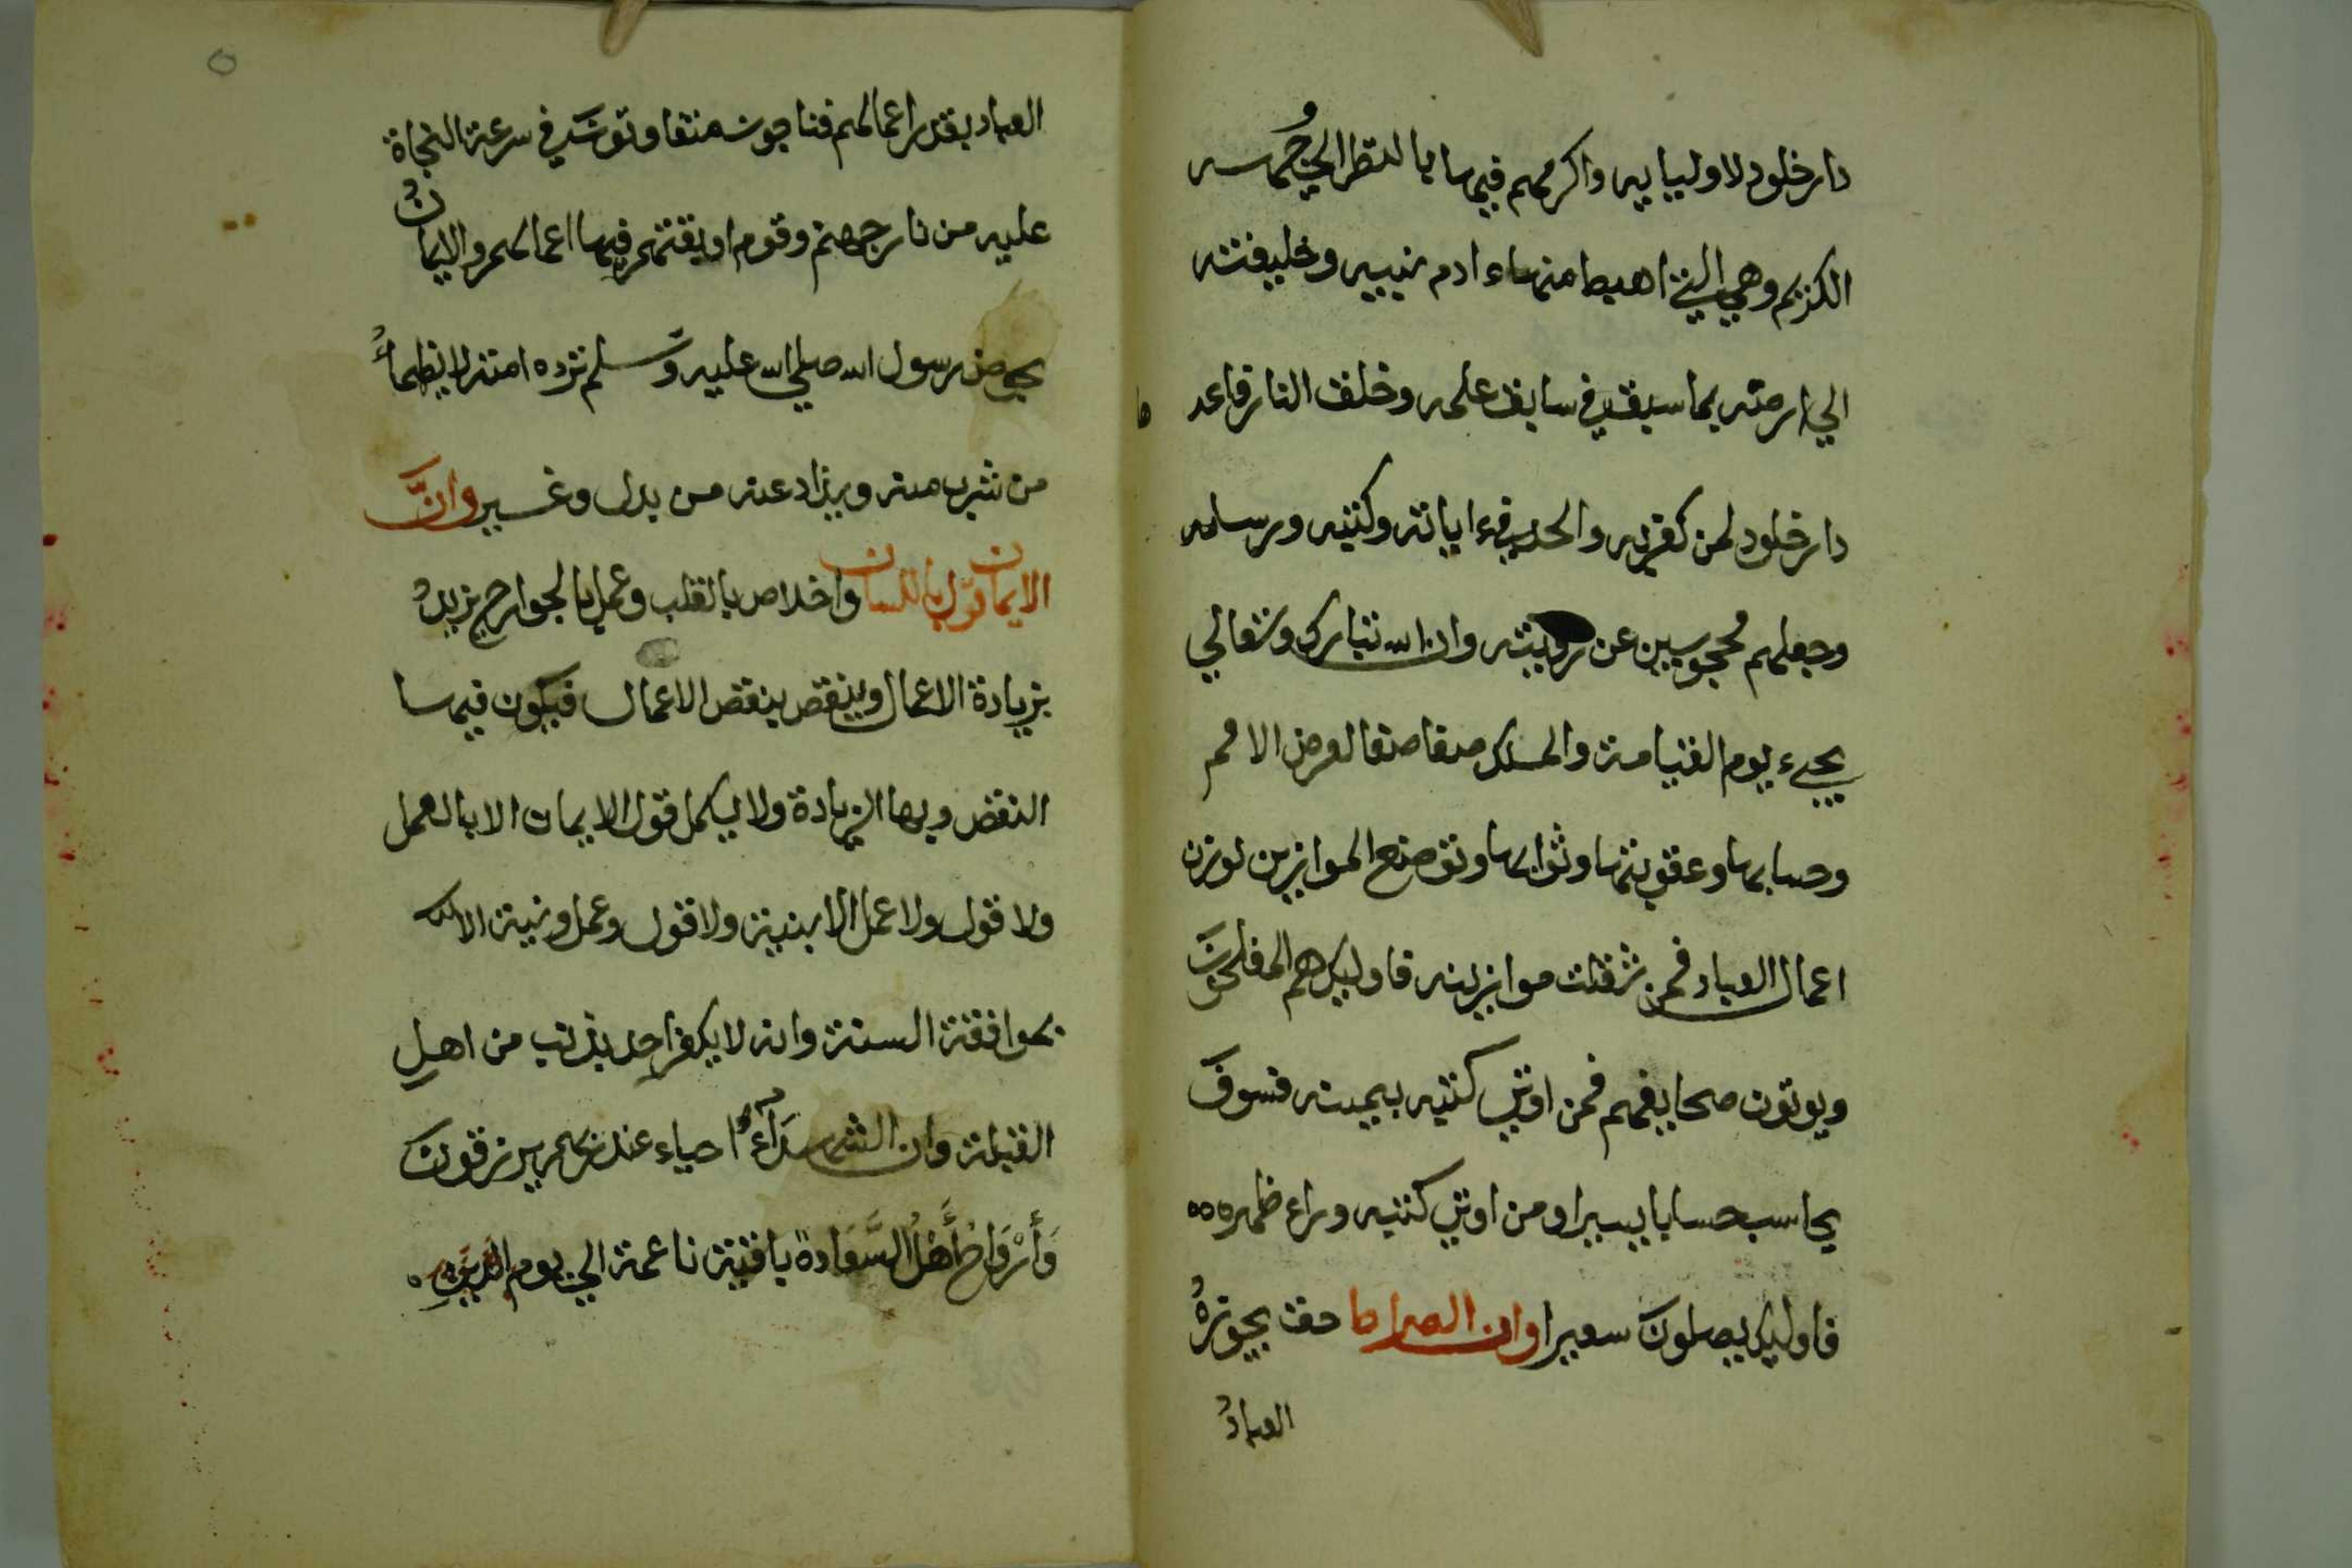 دار خلود لاوليايه واكرمهم فيها بالنظر الي وجهه
الكريم وهي التي اهبط منها ءادم نبيه وخليفته
الي ارضه بما سبق في سابق علمه وخلق النار فاعد
دار خلود لمن كفر به والحد في ءاياته وكتبه ورسله
وجعلهم محجوبين عن رويته وان الله تبارك وتعالي
يجيء يوم القيامة والملك صفا صفا لعرض الامم
وحسابها وعقوبتها وثوابها وتوضع الموازين لوزن
اعمال العباد فمن ثقلت موازينه فاوليك هم المفلحون
ويوتون صحايفهم فمن اوتي كتبه بيمينه فسوف
يحاسب حسابا يسيرا ومن اوتي كتبه وراء ظهره ه ه
فاوليك يصلون سعيرا وان الصراط حق يجوزه
العباد
٥
العباد بقدر اعمالهم فناجون متفاوتون في سرعة النجاة
عليه من نار جهنم وقوم اوبقتهم فيها اعمالهم والايمان
بحوض رسول الله صلي الله عليه وسلم ترده امته لا يظمأ
من شرب منه ويذاد عنه من بدل وغير وان
الايمان قول باللسان واخلاص بالقلب وعمل بالجوارح يزيد
بزيادة الاعمال وينقص بنقص الاعمال فيكون فيها
النقص وبها الزيادة ولا يكمل قول الايمان الا بالعمل
ولا قول ولا عمل الا بنية ولا قول وعمل ونية الا
بموافقة السنة وانه لا يكفر احد بذنب من اهل
القبلة وان الشهدآء احياء عند ربهم يرزقون
وَأَرْوَاحُ أَهْلُ السَّعَادة باقية ناعمة الي يوم الدين ه